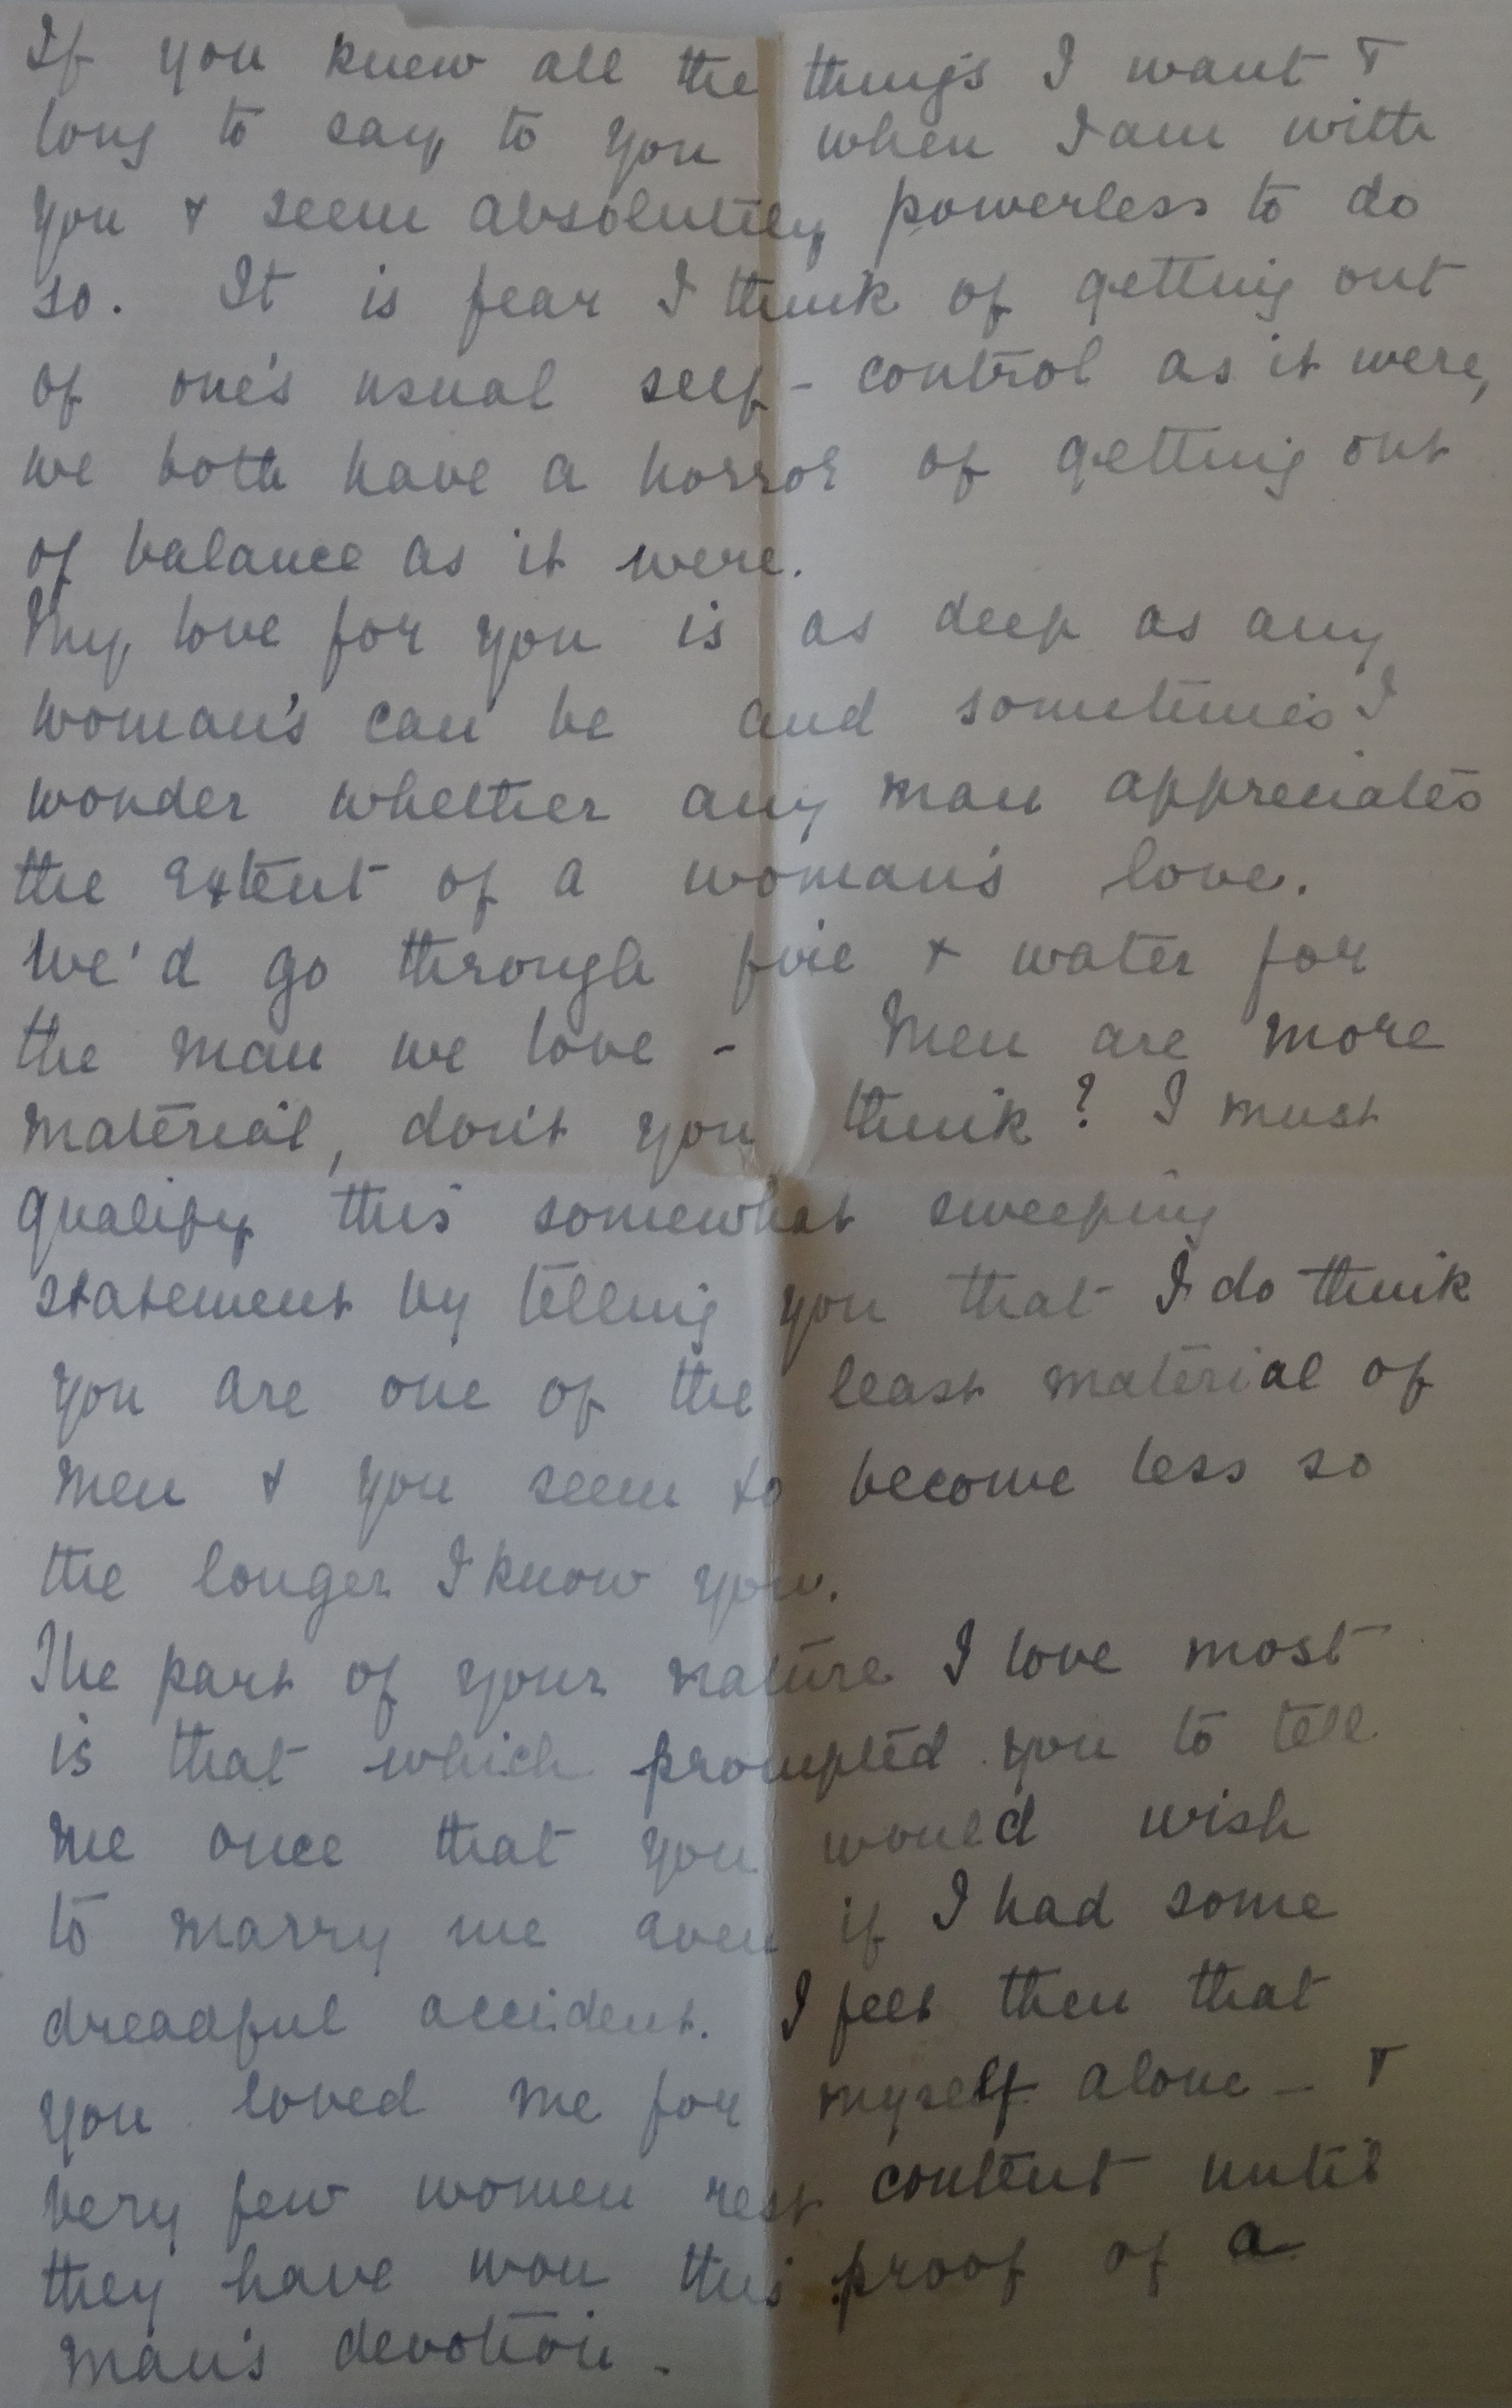 If you knew all the things I want &
long to say to you when I am with
you & seem absolutely powerless to do
so. It is fear I think of getting out
of one's usual self-control as it were,
we both have a horror of getting out
of balance as it were.
My love for you is as deep as any
woman's can be and sometimes I
wonder whether any man appreciates
the extent of a woman's love.
We'd go through fire & water for
the man we love - Men are more
material, don't you think? I must
qualify this somewhat sweeping
statement by telling you that I do think
you are one of the least material of
men & you seem to become less so
the longer I know you.
The part of your nature I love most
is that which prompted you to tell
me once that you would wish
to marry me even if I had some
dreadful accident. I felt then that
you loved me for myself alone - &
very few women rest content until
they have won this proof of a
man's devotion -